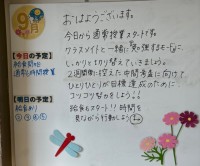 9月
おはようございます。
今日から通常授業スタートです。
クラスメイトと一緒に勉強するモードに
しっかりと切り替えていきましょう。
2週間後に控えた中間考査に向けて
ひとりひとりが目標達成のために
コツコツ努力をしよう!!
給食もスタート!時間を
見ながら行動しよう
【今日の予定】
給食開始
通常6時間授業
【明日の予定】
給食あり